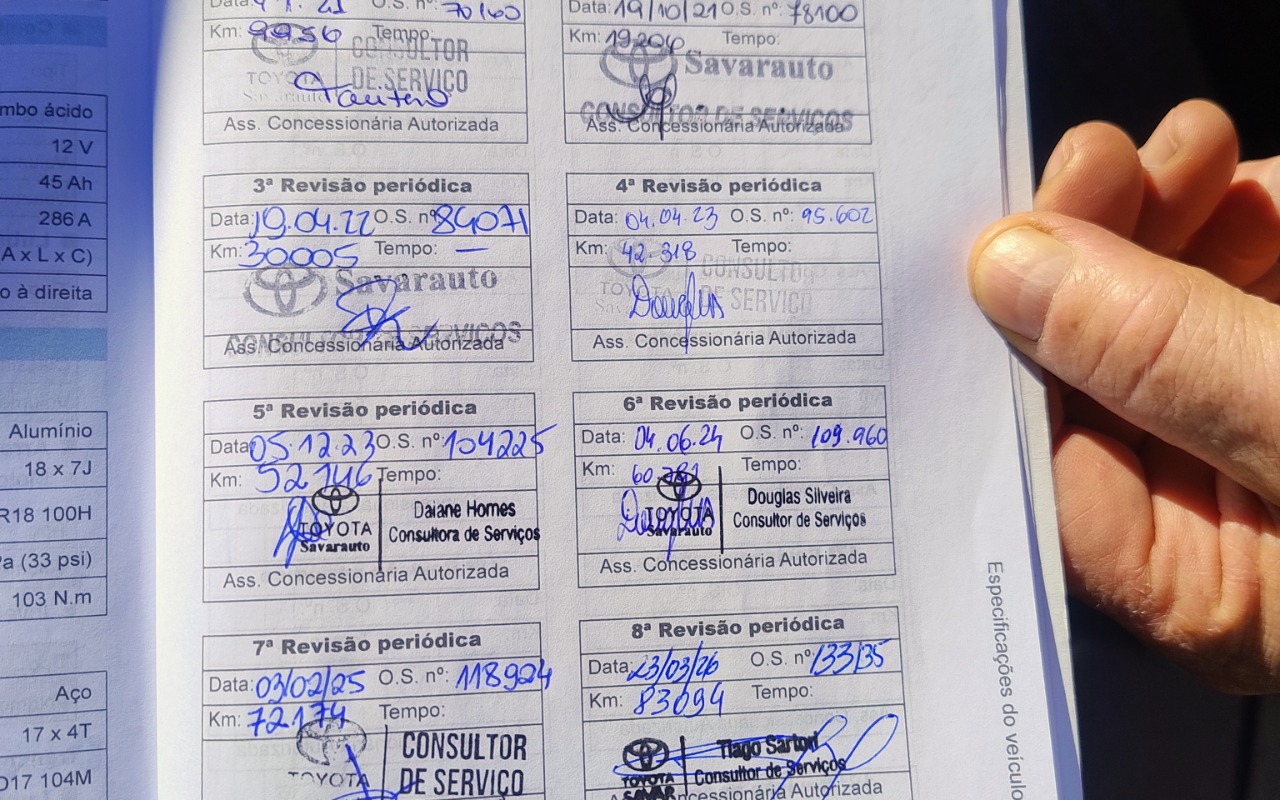 mbo ácido
12 V
45 Ah
286 A
A x L x C)
o à direita
Alumínio
18 x 7J
R18 100H
Pa (33 psi)
103 N.m
Aço
17 x 4T
D17 104M
O.S. nº: 70160
Km: 9956 Tempo:
CONSULTOR
DE SERVIÇO
TOYOTA
Savarauto
Ass. Concessionária Autorizada
Data: 19/10/21 O.S. nº: 78100
Km: 19204 Tempo:
Savarauto
CONSULTOR DE SERVIÇOS
Ass. Concessionária Autorizada
3ª Revisão periódica
Data: 19.04.22 O.S. nº 84071
Km: 30005 Tempo: —
Savarauto
CONSULTOR DE SERVIÇOS
Ass. Concessionária Autorizada
4ª Revisão periódica
Data: 04.04.23 O.S. nº: 95.602
Km: 42.318 Tempo:
CONSULTOR
DE SERVIÇO
TOYOTA
Douglas
Ass. Concessionária Autorizada
5ª Revisão periódica
Data: 05.12.23 O.S. nº: 104225
Km: 52146 Tempo:
TOYOTA
Savarauto
Daiane Homes
Consultora de Serviços
Ass. Concessionária Autorizada
6ª Revisão periódica
Data: 04.06.24 O.S. nº: 109.960
Km: Tempo:
Douglas
TOYOTA
Savarauto
Douglas Silveira
Consultor de Serviços
Ass. Concessionária Autorizada
7ª Revisão periódica
Data: 03/02/25 O.S. nº: 118924
Km: 72174 Tempo:
TOYOTA
CONSULTOR
DE SERVIÇO
8ª Revisão periódica
Data: 23/03/26 O.S. nº: 133135
Km: 83094 Tempo:
TOYOTA
Tiago Sartori
Consultor de Serviços
Concessionária Autorizada
Especificações do veículo